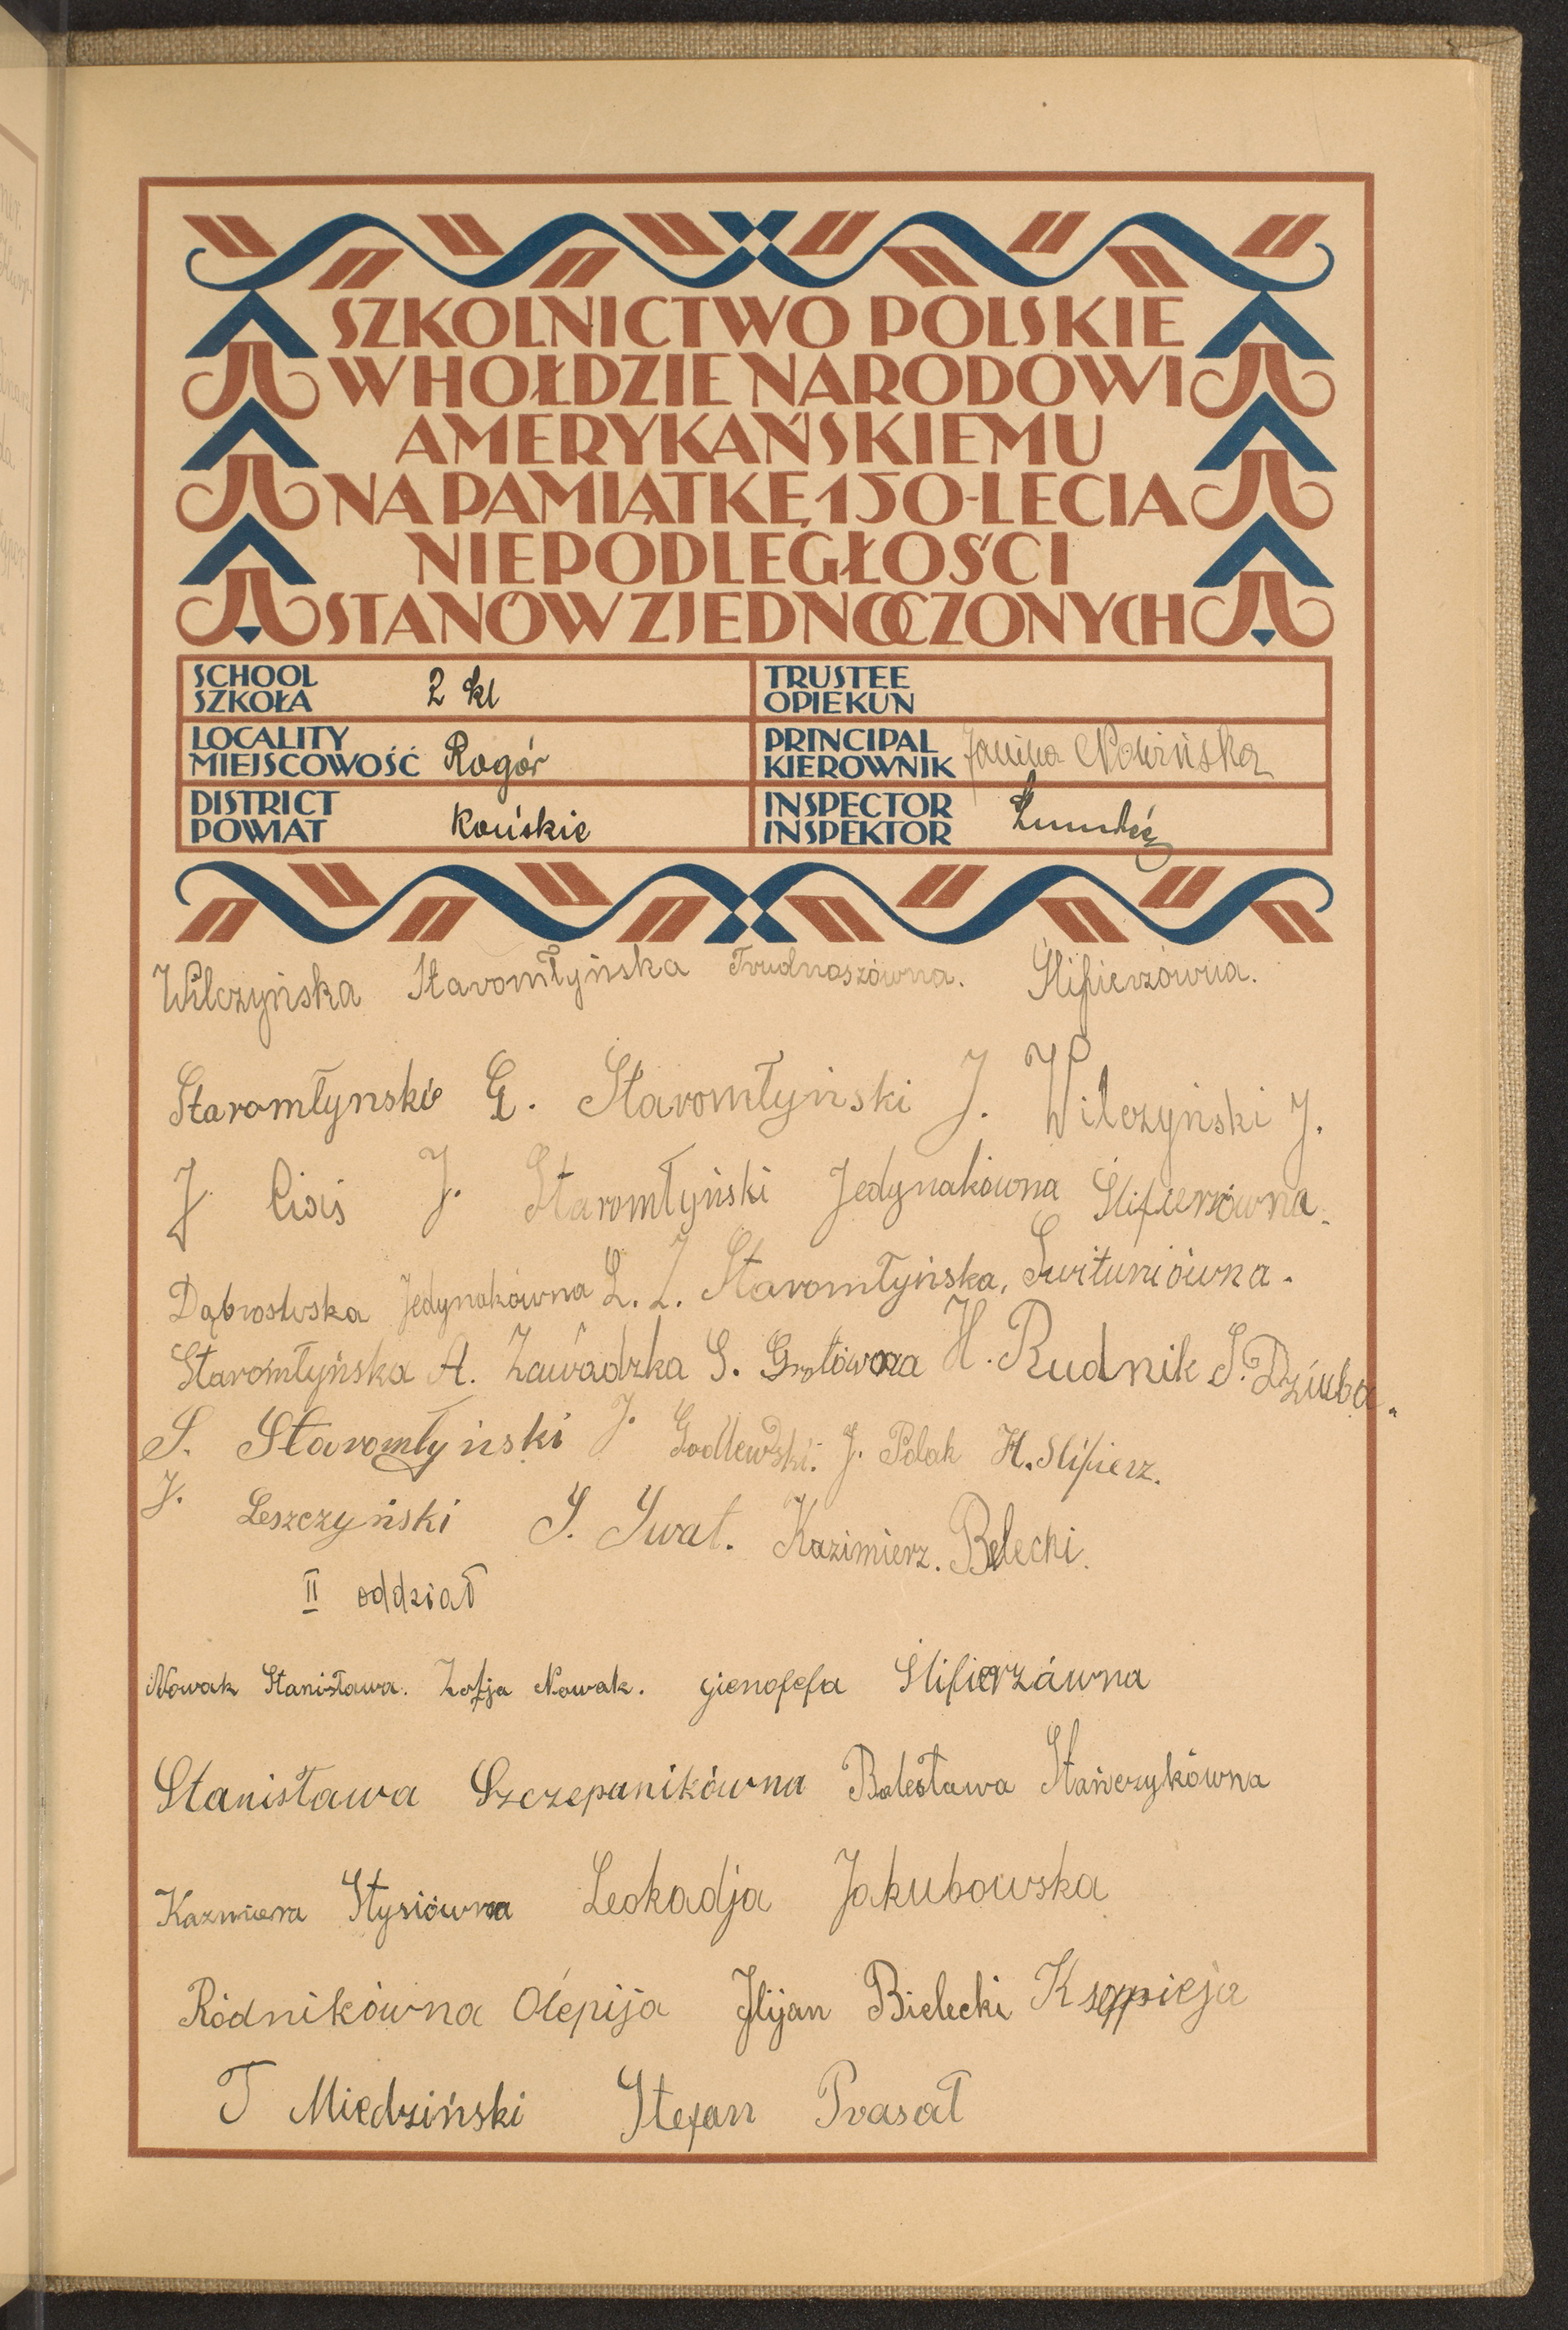 SZKOLNICTWO POLSKIE
W HOŁDZIE NARODOWI
AMERYKAŃSKIEMU
NA PAMIĄTKĘ 150-LECIA
NIEPODLEGŁOŚCI
STANÓW ZJEDNOCZONYCH
SCHOOL
SZKOŁA 2 kl
TRUSTEE
OPIEKUN
LOCALITY
MIEJSCOWOŚĆ Rogór
PRINCIPAL
KIEROWNIK Janina
DISTRICT
POWIAT Końskie
INSPECTOR
INSPEKTOR
Wilczyńska Staromłyńska Trudnoszówna. Ślifierzówna.
Staromłynskie G. Staromłyński J. Wilczyński J.
J. Ciaś J. Staromłyński Jedynakówna Ślifierzówna.
Dąbrowska Jedynakówna L. Z. Staromłyńska, Śwituniówna.
Staromłyńska A. Zawadzka S. Grotówna H. Rudnik S. Dziuba.
S. Staromłyński J. Godlewski. J. Polak H. Slifierz.
J. Leszczyński S. Swat. Kazimierz. Belecki.
II oddział
Nowak Stanisława. Zofja Nowak. gienofefa Slifierzáwna
Stanisława Szczepanikówna Bolesława Stańczykówna
Kazmiera Stysiówna Leokadja Jakubowska
Ródnikówna Olepija Jlijan Bielecki
T Miedziński Stefan Prasał